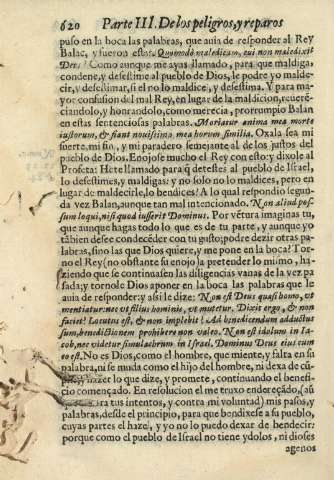 620 Parte III. De los peligros, y reparos
puso en la boca las palabras, que auia de responder al Rey
Balac, y fueron estas: Quomodo maledicam, cui non maledixit
Deus? Como aunque me ayas llamado, para que maldiga,
condene, y desestime al pueblo de Dios, le podre yo maldezir,
y desestimar, si el no lo maldice, y desestima. Y para mayor
confusion del mal Rey, en lugar de la maldicion, reuerenciandolo,
y honrandolo, como merecia, prorrumpio Balan
en estas sentenciosas palabras. Moriatur anima mea morte
iustorum, & fiant nouissima mea horum similia. Oxala sea mi
suerte, mi fin, y mi paradero semejante al de los justos del
pueblo de Dios. Enojose mucho el Rey con esto: y dixole al
Profeta: Hete llamado para q̃ detestes al pueblo de Israel,
lo desestimes, y maldigas: y no solo no lo maldices, pero en
lugar de maldecirle, lo bendices? A lo qual respondio segunda
vez Balan, aunque tan mal intencionado. Non aliud possum
loqui, nisi quod iusserit Dominus. Por vẽtura imaginas tu,
que aunque hagas todo lo que es de tu parte, y aunque yo
tãbien desee condecẽder con tu gusto; podre dezir otras palabras,
sino las que Dios quiere, y me pone en la boca? Torno
el Rey (no obstante su enojo) a pretender lo mismo, haziendo
que se continuasen las diligencias vanas de la vez pasada;
y tornole Dios aponer en la boca las palabras que le
auia de responder: y asi le dize: Non est Deus quasi homo, vt
mentiatur: nec vt filius hominis, vt mutetur. Dixit ergo, & non
faciet? Locutus est, & non implebit? Ad benedicendum adductus
sum, benedictionem prohibere non valeo. Non est idolum in Iacob,
nec videtur simulachrum in Israel. Dominus Deus eius cum
eo est. No es Dios, como el hombre, que miente, y falta en su
palabra, ni se muda como el hijo del hombre, ni dexa de cũplir,
y hazer lo que dize, y promete, continuando el beneficio
començado. En resolucion el me truxo endereçãdo, (asi
tra tus intentos, y contra mi voluntad) mis pasos, y
palabras, desde el principio, para que bendixese a su pueblo,
cuyas partes el haze, y yo no lo puedo dexar de bendecir:
porque como el pueblo de Israel no tiene ydolos, ni dioses
agenos